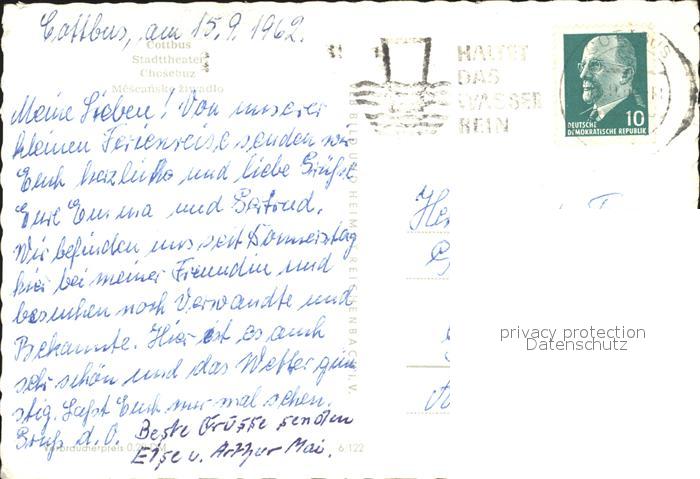 Cottbus, am 15.9.1962.
Cottbus
Stadttheater
Chośebuz
Měsćańske źiwadło
Meine Lieben! Von unserer
kleinen Ferienreise senden wir
Euch herzliche und liebe Grüße
Eure Emma und Gertrud.
Wir befinden uns seit Donnerstag
hier bei meiner Freundin und
besuchen noch Verwandte und
Bekannte. Hier ist es auch
sehr schön und das Wetter gün
stig. Laßt Euch mal sehen.
Gruß d. O.
Beste Grüsse senden
Else u. Arthur Mai.
Verbraucherpreis 0,20 DM
6/122
BILD UND HEIMAT REICHENBACH I. V.
HALTET
DAS
WASSER
REIN
10
DEUTSCHE
DEMOKRATISCHE REPUBLIK
privacy protection
Datenschutz